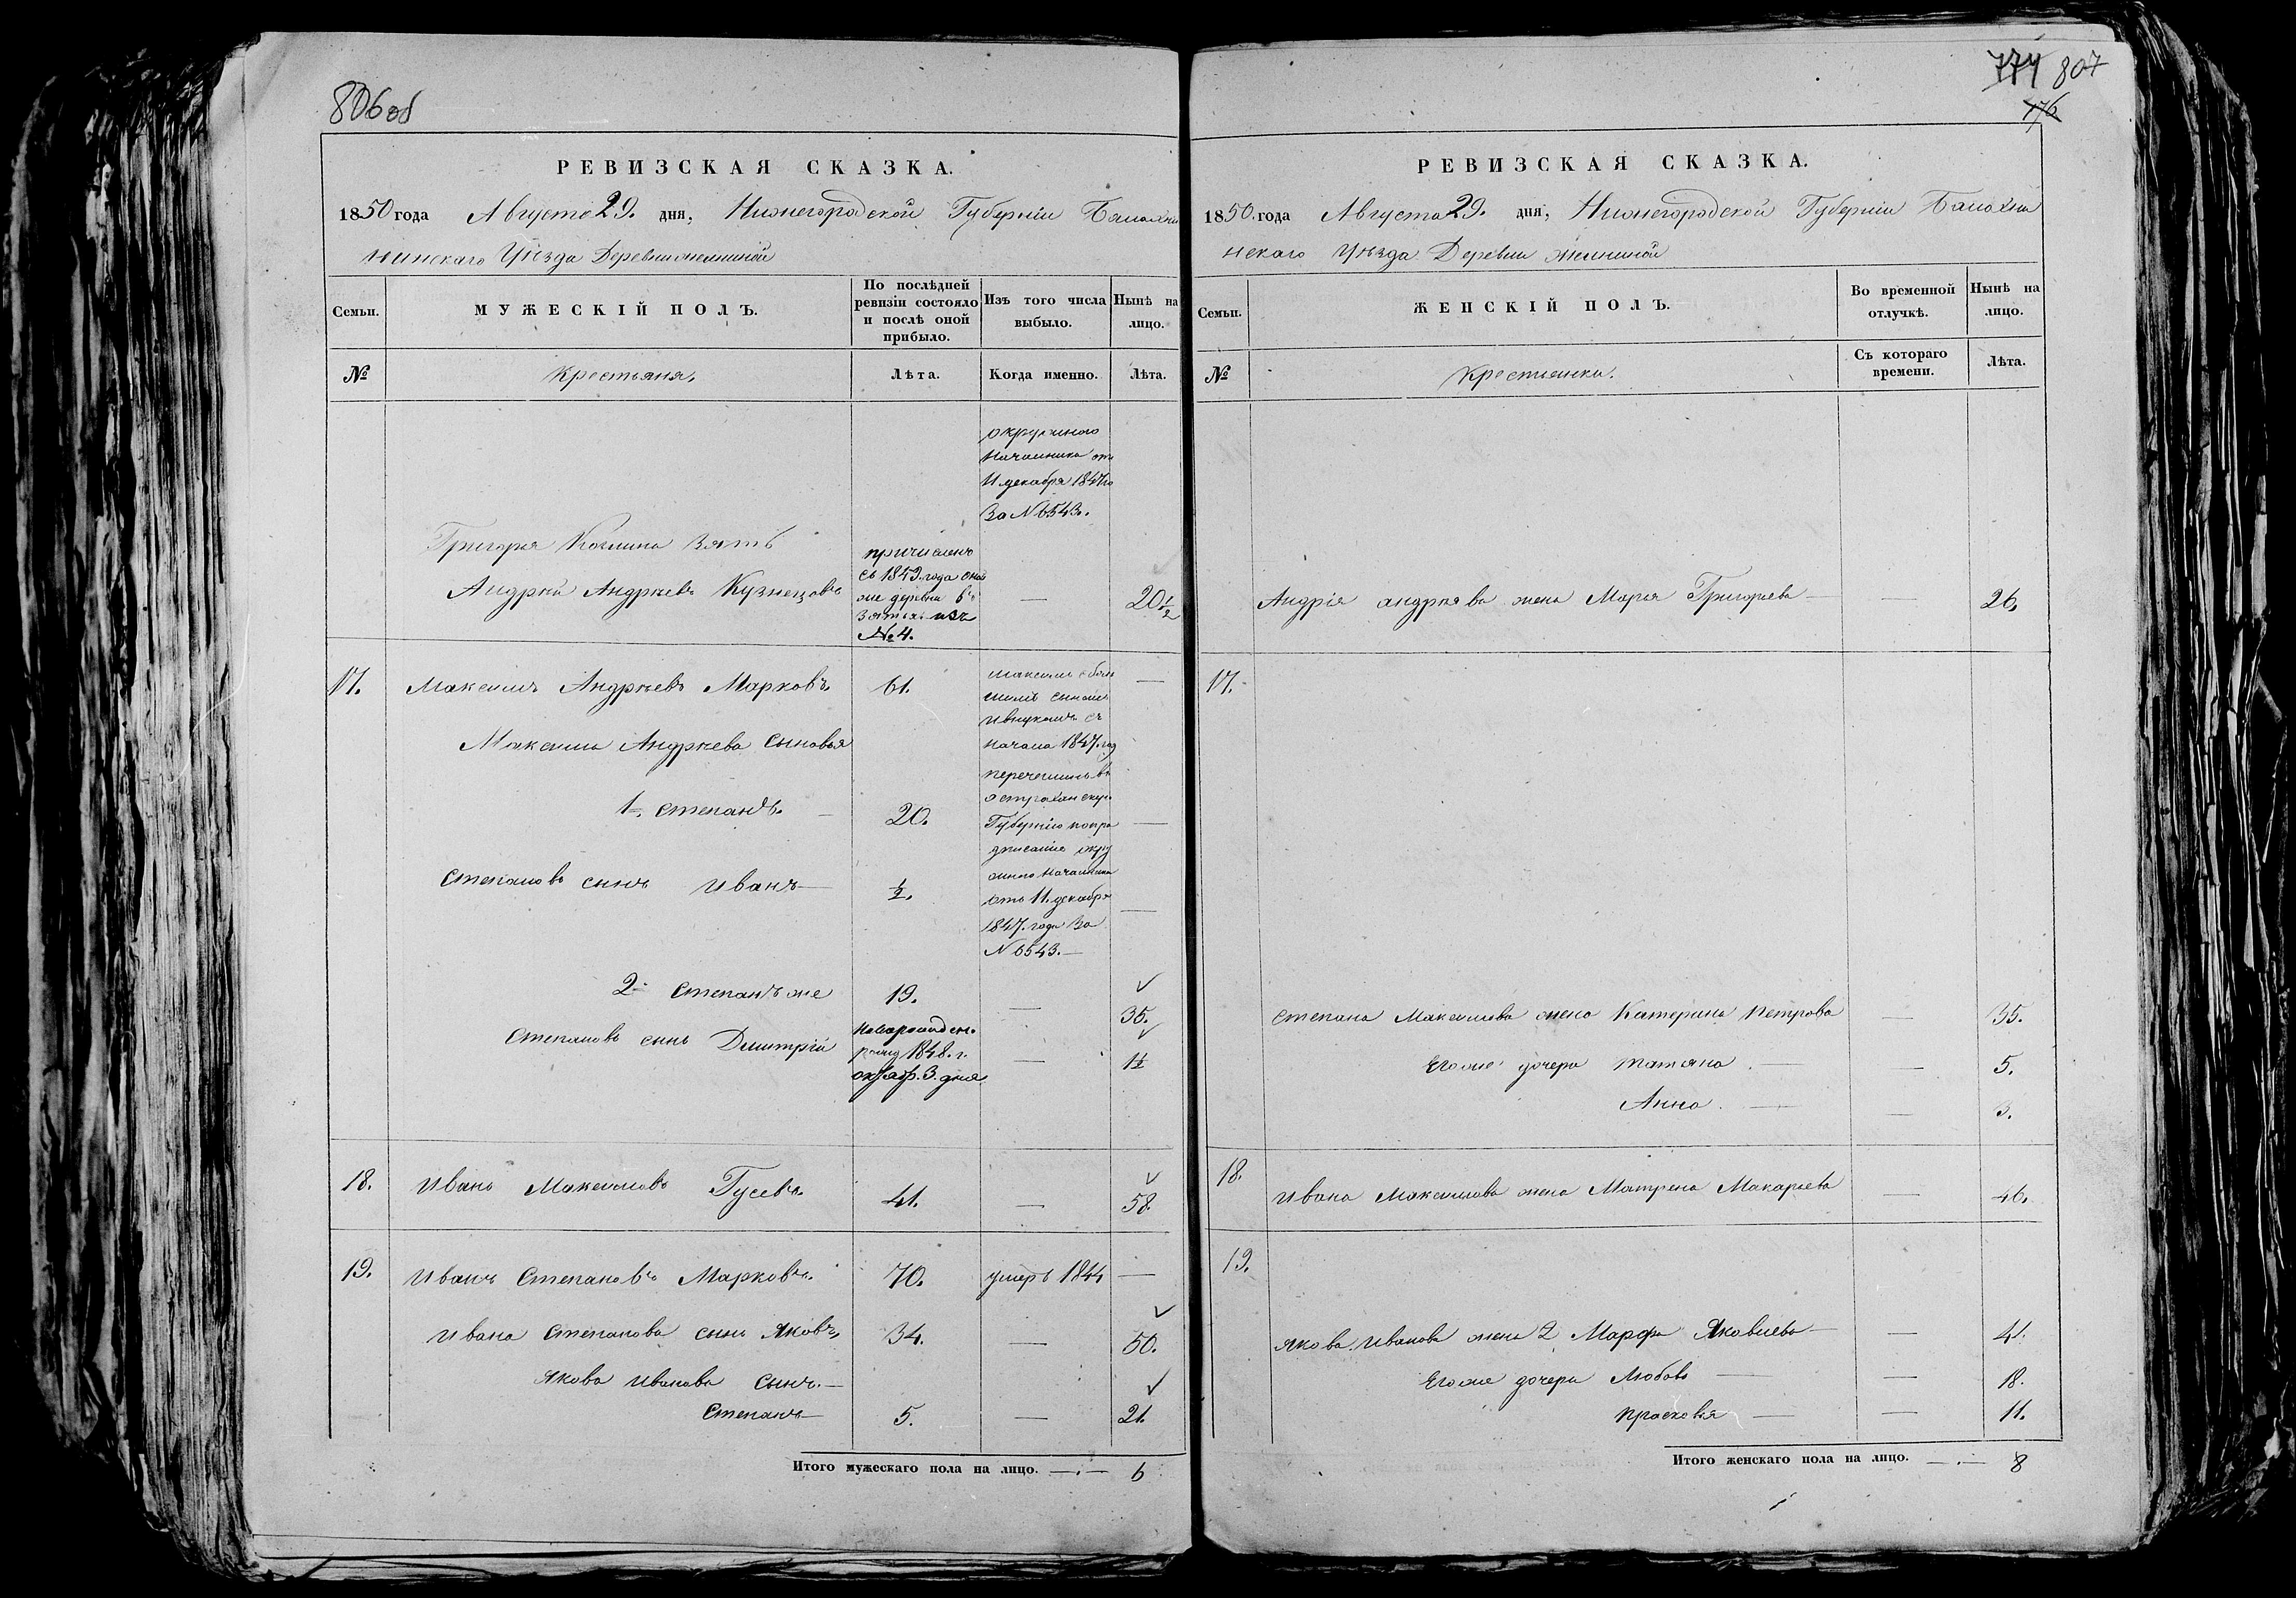 806 об
РЕВИЗСКАЯ СКАЗКА.
1850 года Августа 29. дня, Нижегородской Губерніи Балахни
нинскаго Уѣзда Деревни
Семьи.
МУЖЕСКІЙ ПОЛЪ.
По послѣдней
ревизіи состояло
и послѣ оной
прибыло.
Изъ того числа
выбыло.
Нынѣ на
лицо.
№
Крестьяня.
Лѣта.
Когда именно.
Лѣта.
окружного
Начальника отъ
11 декабря 1847го
За N 6543.
Григорья зять
Андрей Андреевъ Кузнецовъ
причисленъ
съ 1849. года оной
же деревни въ
зятья изъ
№ 4.
—
20 1/2
17.
Максимъ Андреевъ Марковъ.
61.
Максимъ
сыномъ
и внукомъ съ
начала 1847. год
перечисленъ въ
Астраханскую
Губернію по пре
дписанію окру
жного Начальника
отъ 11. декабря
1847. года За
N 6543.—
—
Максима Андреева сыновья
1й. Степанъ. —
20.
—
Степановъ сынъ Иванъ—
1/2.
—
2й Степанъ же
19.
—
35.
Степановъ сынъ Дмитрій
новорожден.
рожд 1848. г.
октяб. 3. дня
—
1 1/2
18.
Иванъ Максимовъ Гусевъ.
41.
—
58.
19.
Иванъ Степановъ Марковъ.
70.
умеръ 1844
—
Ивана Степанова сынъ Яковъ,
34.
—
50.
Якова Иванова сынъ.—
Степанъ—
5.
—
21.
Итого мужескаго пола на лицо. —·— 6
774 807
176
РЕВИЗСКАЯ СКАЗКА.
1850. года Августа 29. дня, Нижегородской Губерніи Балахни
нскаго Уѣзда Деревни
Семьи.
ЖЕНСКІЙ ПОЛЪ.
Во временной
отлучкѣ.
Нынѣ на
лицо.
№
Крестьянки.
Съ котораго
времени.
Лѣта.
Андрія андреява жена Марья Григорьева — — 26.
17.
Степана Максимова жена Катерина Петрова — 35.
Егоже дочери Татяна. — — 5.
Анна. — — 3.
18.
Ивана Максимова жена Матрена Макарьева — 46.
19.
Якова Иванова жена 2 Марфа Яковлева — — 41.
Егоже дочери Любовь — — 18.
Прасковья — — 11.
Итого женскаго пола на лицо. —·— 8